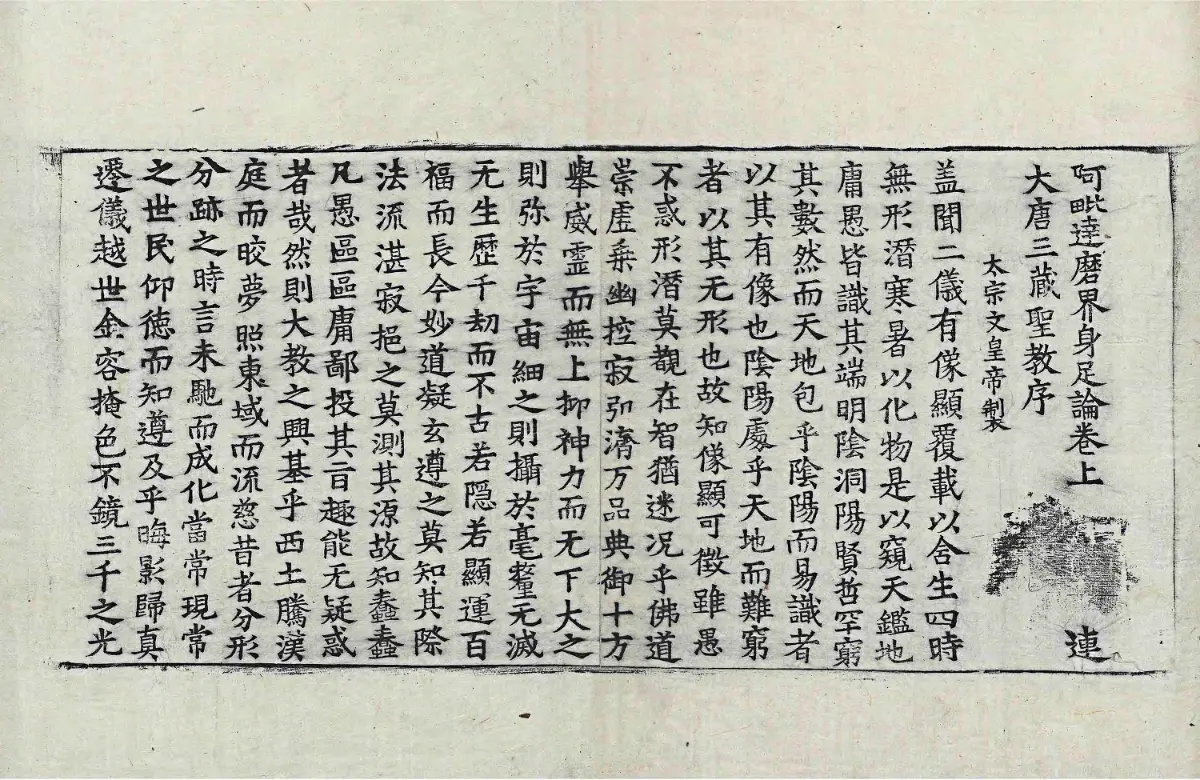 阿毗達磨界身足論卷上 連
大唐三藏聖教序
太宗文皇帝製
盖聞二儀有像顯覆載以含生四時
無形潛寒暑以化物是以窺天鑑地
庸愚皆識其端明陰洞陽賢哲罕窮
其數然而天地包乎陰陽而易識者
以其有像也陰陽處乎天地而難窮
者以其无形也故知像顯可徵雖愚
不惑形潛莫覩在智猶迷况乎佛道
崇虛乘幽控寂弘濟万品典御十方
舉威靈而無上抑神力而无下大之
則弥於宇宙細之則攝於毫氂无滅
无生歷千劫而不古若隱若顯運百
福而長今妙道凝玄遵之莫知其際
法流湛寂挹之莫測其源故知蠢蠢
凡愚區區庸鄙投其旨趣能无疑惑
者哉然則大教之興基乎西土騰漢
庭而晈夢照東域而流慈昔者分形
分跡之時言未馳而成化當常現常
之世民仰徳而知遵及乎晦影歸真
遷儀越世金容掩色不鏡三千之光